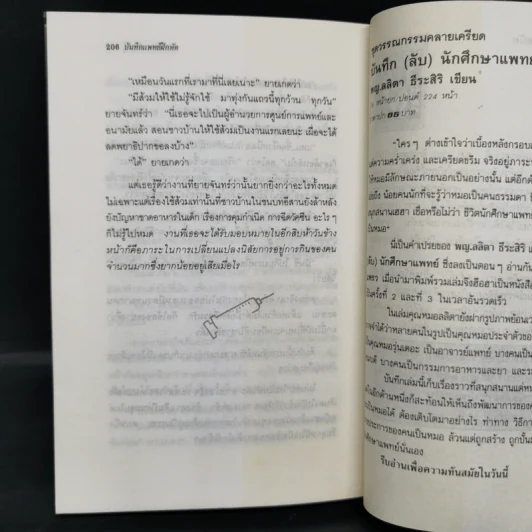 206 บันทึกแพทย์ฝึกหัด
"เหมือนวันแรกที่เรามาที่นี่เลยเนาะ" ยายเกิดว่า
"มีส้วมให้ใช้ไม่รู้จักใช้ มาทุ่งกันแถวนี้ทุกวัน ทุกวัน"
ยายจันทร์ว่า "นี่เธอจะไปเป็นผู้อำนวยการศูนย์การแพทย์และ
อนามัยแล้ว สอนชาวบ้านให้ใช้ส้วมเป็นงานแรกเลยนะ เผื่อจะได้
ลดพยาธิปากขอลงบ้าง"
"ได้" ยายเกิดว่า
แต่เธอรู้ดีว่างานที่ยายจันทร์ว่านั้นยากยิ่งกว่าอะไรทั้งหมด
ไม่เฉพาะแต่เรื่องใช้ส้วมเท่านั้นที่ชาวบ้านในชนบทอีสานยังล้าหลัง
ยังปัญหาขาดอาหารในเด็ก เรื่องการคุมกำเนิด การฉีดวัคซีน อะไร ๆ
ก็ไม่รู้ไปหมด งานที่เธอจะได้รับมอบหมายในอีกสิบห้าวันข้าง
หน้าก็คือภาระในการเปลี่ยนแปลงนิสัยการอยู่การกินของคน
จำนวนมากซึ่งยากน้อยอยู่เสียเมื่อไร
ชุดวรรณกรรมคลายเครียด
บันทึก (ลับ) นักศึกษาแพทย์
พญ.ลลิตา ธีระสิริ เขียน
หน้ายก/ปอนด์ 224 หน้า
ราคา 55 บาท
"ใคร ๆ ต่างเข้าใจว่าเบื้องหลังกรอบ
ความคร่ำเคร่ง และเครียดขรึม จริงอยู่ภาระ
ให้หมอมีลักษณะภายนอกเป็นอย่างนั้น แต่อีกด้าน
น้อยคนนักที่จะรู้ว่าหมอเป็นคนธรรมดา
สนุกสนานเฮฮา เชื่อหรือไม่ว่า ชีวิตนักศึกษาแพทย์
หมอ"
นี่เป็นคำเปรยของ พญ.ลลิตา ธีระสิริ
(ลับ) นักศึกษาแพทย์ ซึ่งลงเป็นตอน ๆ อ่านกัน
เมื่อนำมาพิมพ์รวมเล่มจึงฮือฮาเป็นหนังสือ
เป็นครั้งที่ 2 และที่ 3 ในเวลาอันรวดเร็ว
ในเล่มคุณหมอลลิตายังฝากรูปภาพย้อนเวลา
จำได้ว่าหลายคนในรูปเป็นคุณหมอประจำตัวของ
คุณหมอรุ่นเดอะ เป็นอาจารย์แพทย์ บางคนเป็น
บางคนเป็นกรรมการอาหารและยา และ
บันทึกเล่มนี้เก็บเรื่องราวที่สนุกสนานแต่
อีกด้านหนึ่งก็สะท้อนให้เห็นถึงพัฒนาการของ
เป็นหมอได้ ต้องเติบโตมาอย่างไร ท่าทาง วิธีการ
ของคนเป็นหมอ ล้วนแต่ถูกสร้าง ถูกปั้น
นักศึกษาแพทย์นั่นเอง
รีบอ่านเพื่อความทันสมัยในวันนี้